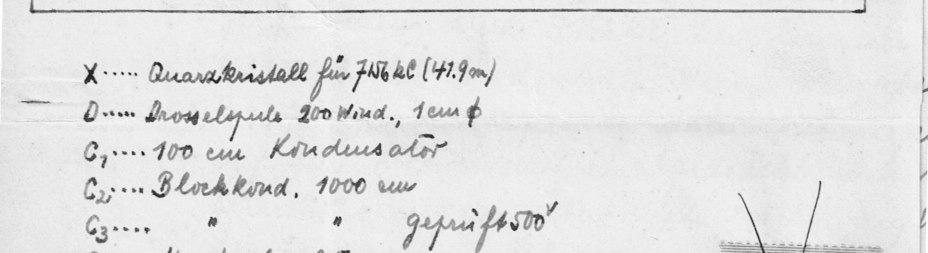 X..... Quarzkristall für 7156 kC (41.9 m)
D..... Drosselspule 200 Wind., 1 cm ϕ
C₁.... 100 cm Kondensator
C₂.... Blockkond. 1000 cm
C₃.... " " geprüft 500ᵛ